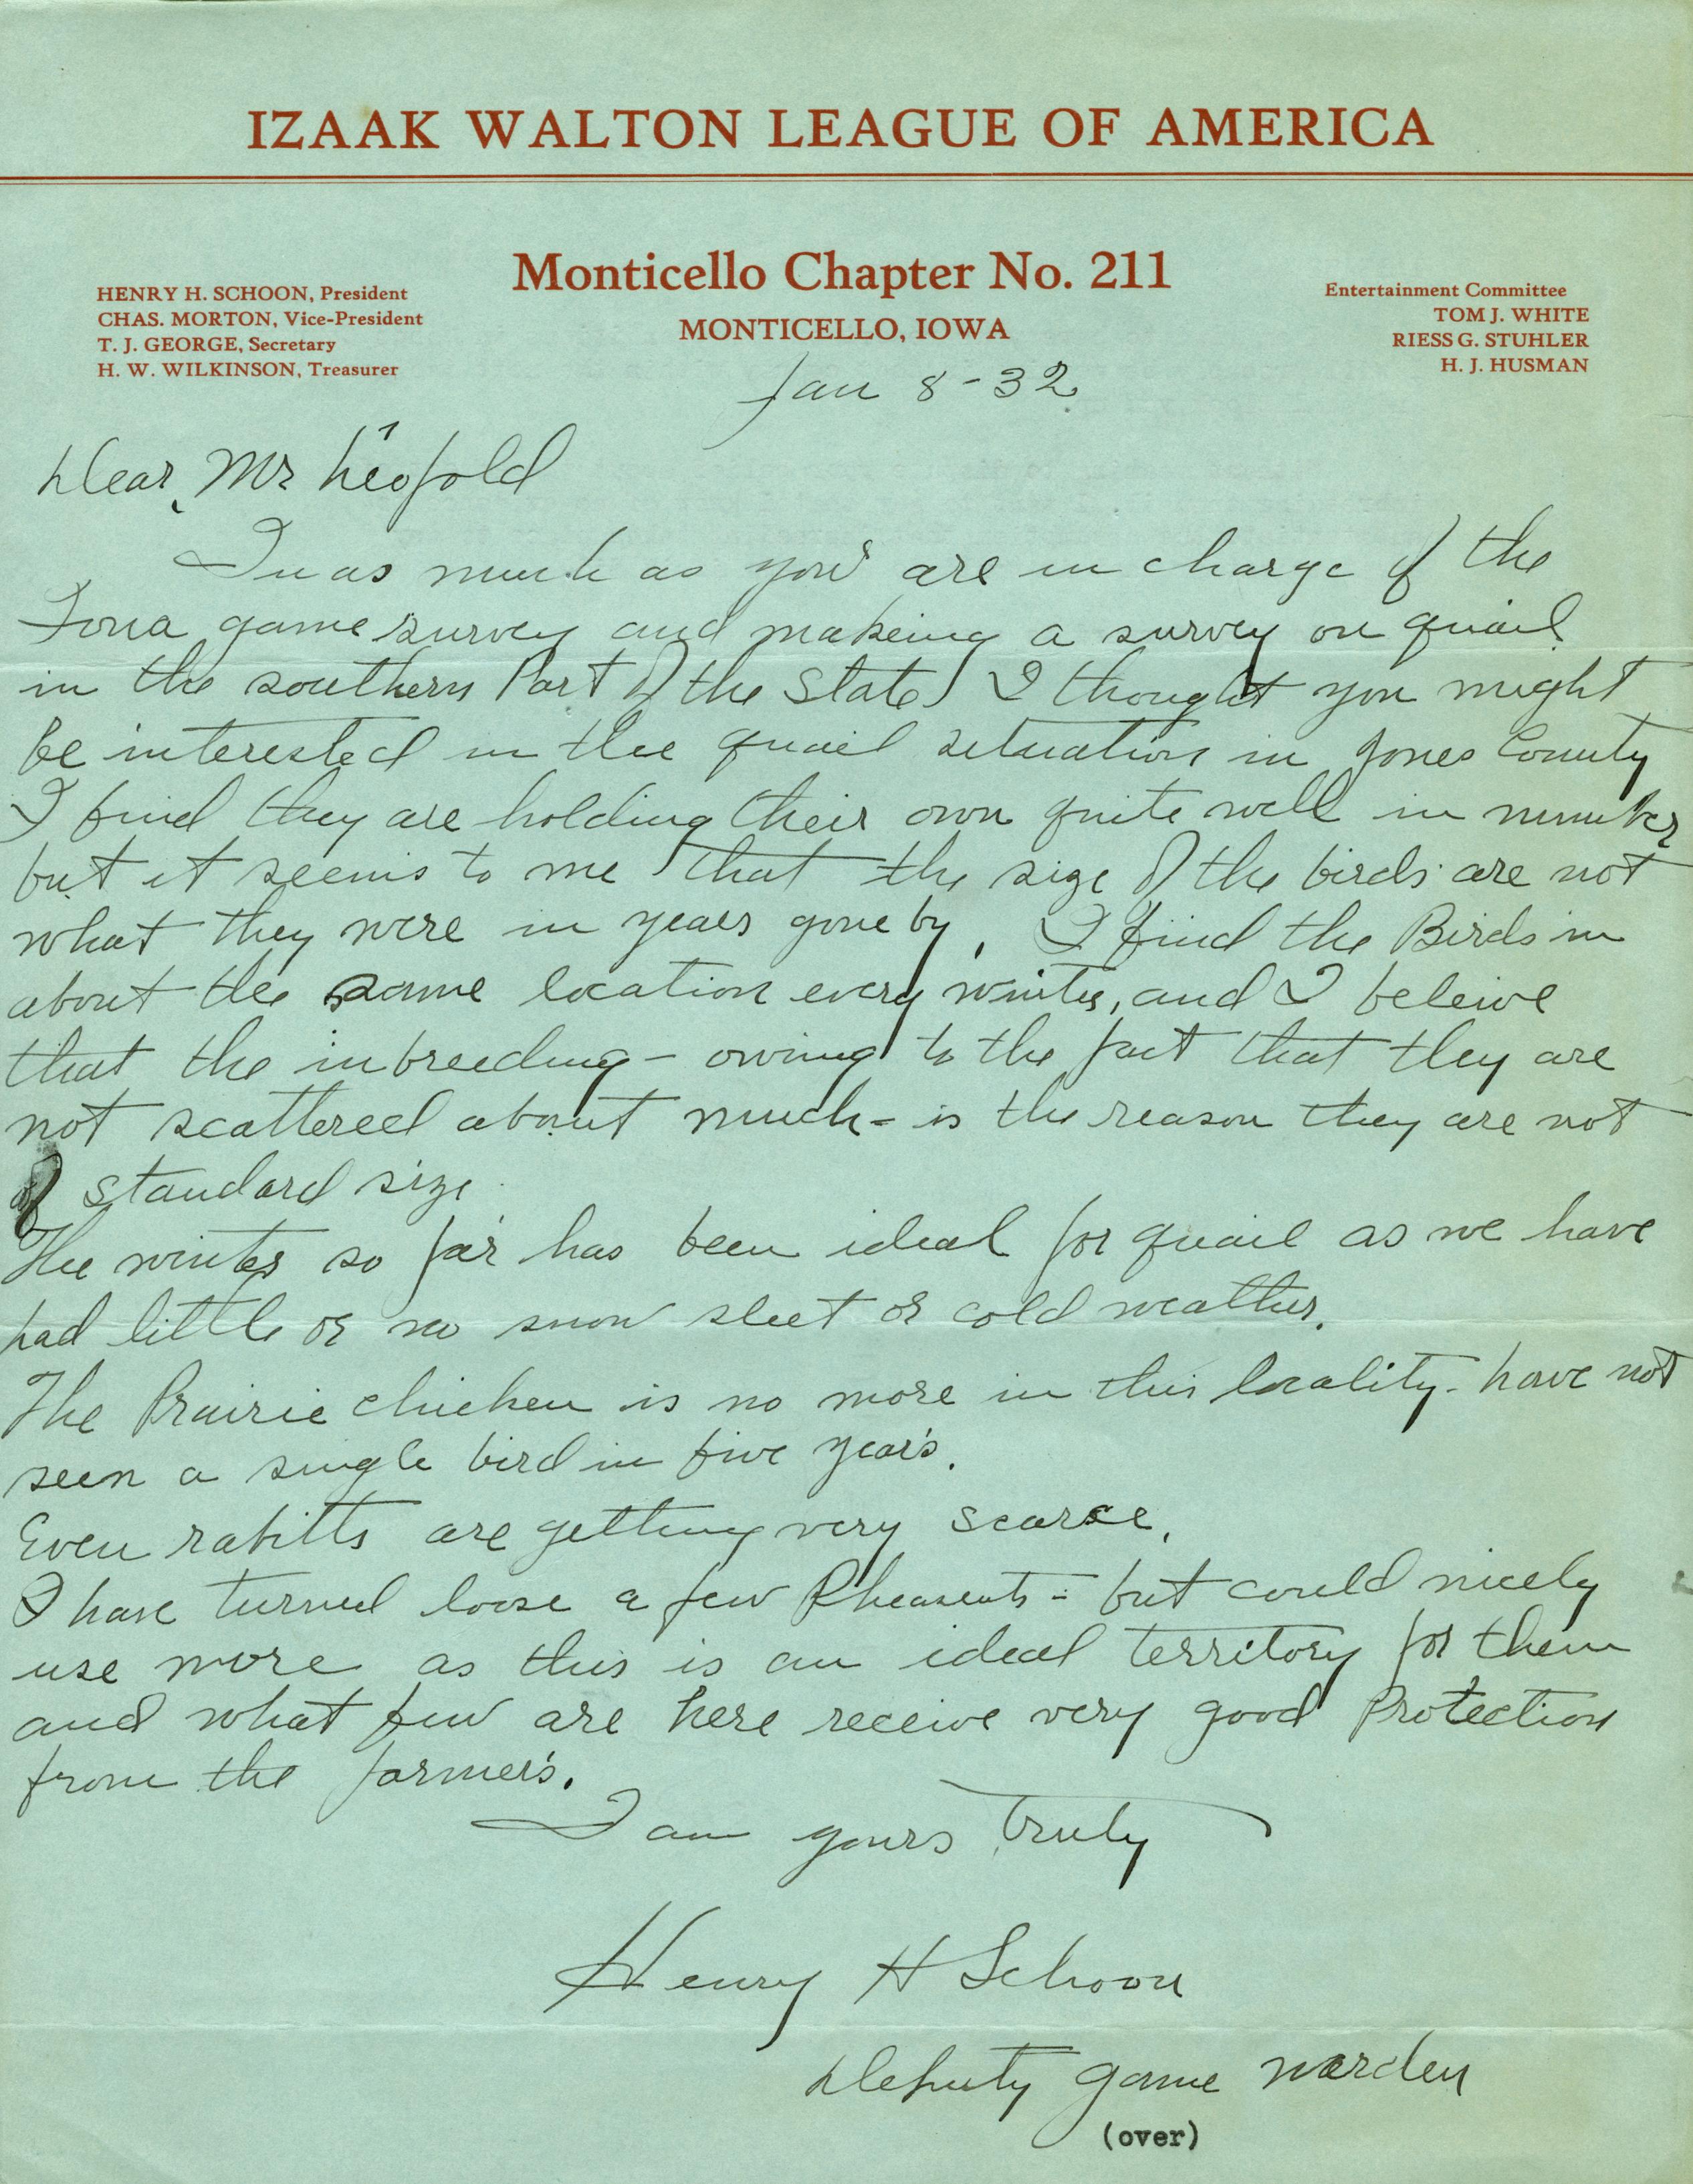 IZAAK WALTON LEAGUE OF AMERICA
Monticello Chapter No. 211
MONTICELLO, IOWA
HENRY H. SCHOON, President
CHAS. MORTON, Vice-President
T. J. GEORGE, Secretary
H. W. WILKINSON, Treasurer
Entertainment Committee
TOM J. WHITE
RIESS G. STUHLER
H. J. HUSMAN
Jan 8-32
Dear Mr Leopold
In as much as you are in charge of the
Iowa game survey and makeing a survey on quail
in the southern Part of the State I thought you might
be interested in the quail situation in Jones County
I find they are holding their own quite well in number
but it seems to me that the size of the birds are not
what they were in years gone by. I find the Birds in
about the same location every winter, and I beleive
that the inbreeding - owing to the fact that they are
not scattered about much - is the reason they are not
of standard size.
The winter so far has been ideal for quail as we have
had little or no snow sleet or cold weather.
The Prairie chicken is no more in this locality - have not
seen a single bird in five year's.
Even rabitts are getting very scarce.
I have turned loose a few Pheasents - but could nicely
use more as this is an ideal territory for them
and what few are here receive very good Protection
from the farmer's.
I am yours truly
Henry H Schoon
Deputy game warden
(over)